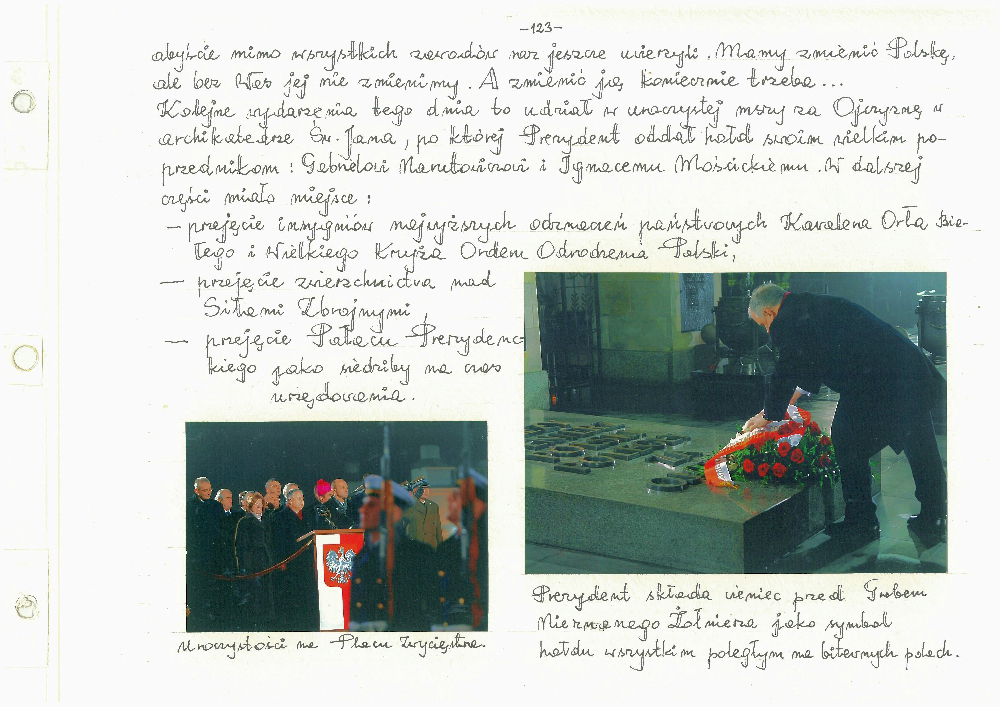 -123-
abyście mimo wszystkich zawodów raz jeszcze uwierzyli. Mamy zmienić Polskę,
ale bez Was jej nie zmienimy. A zmienić ją koniecznie trzeba...
Kolejne wydarzenia tego dnia to udział w uroczystej mszy za Ojczyznę w
archikatedrze Św. Jana, po której Prezydent oddał hołd swoim wielkim po-
przednikom: Gabrielowi Narutowiczowi i Ignacemu Mościckiemu. W dalszej
części miało miejsce:
- przejęcie insygniów najwyższych odznaczeń państwowych Kawalera Orła Bia-
łego i Wielkiego Krzyża Orderu Odrodzenia Polski,
- przejęcie zwierzchnictwa nad
Siłami Zbrojnymi
- przejęcie Pałacu Prezydenc
kiego jako siedziby na czas
urzędowania.
Uroczystości na Placu Zwycięstwa.
Prezydent składa wieniec przed Grobem
Nieznanego Żołnierza jako symbol
hołdu wszystkim poległym na bitewnych polach.